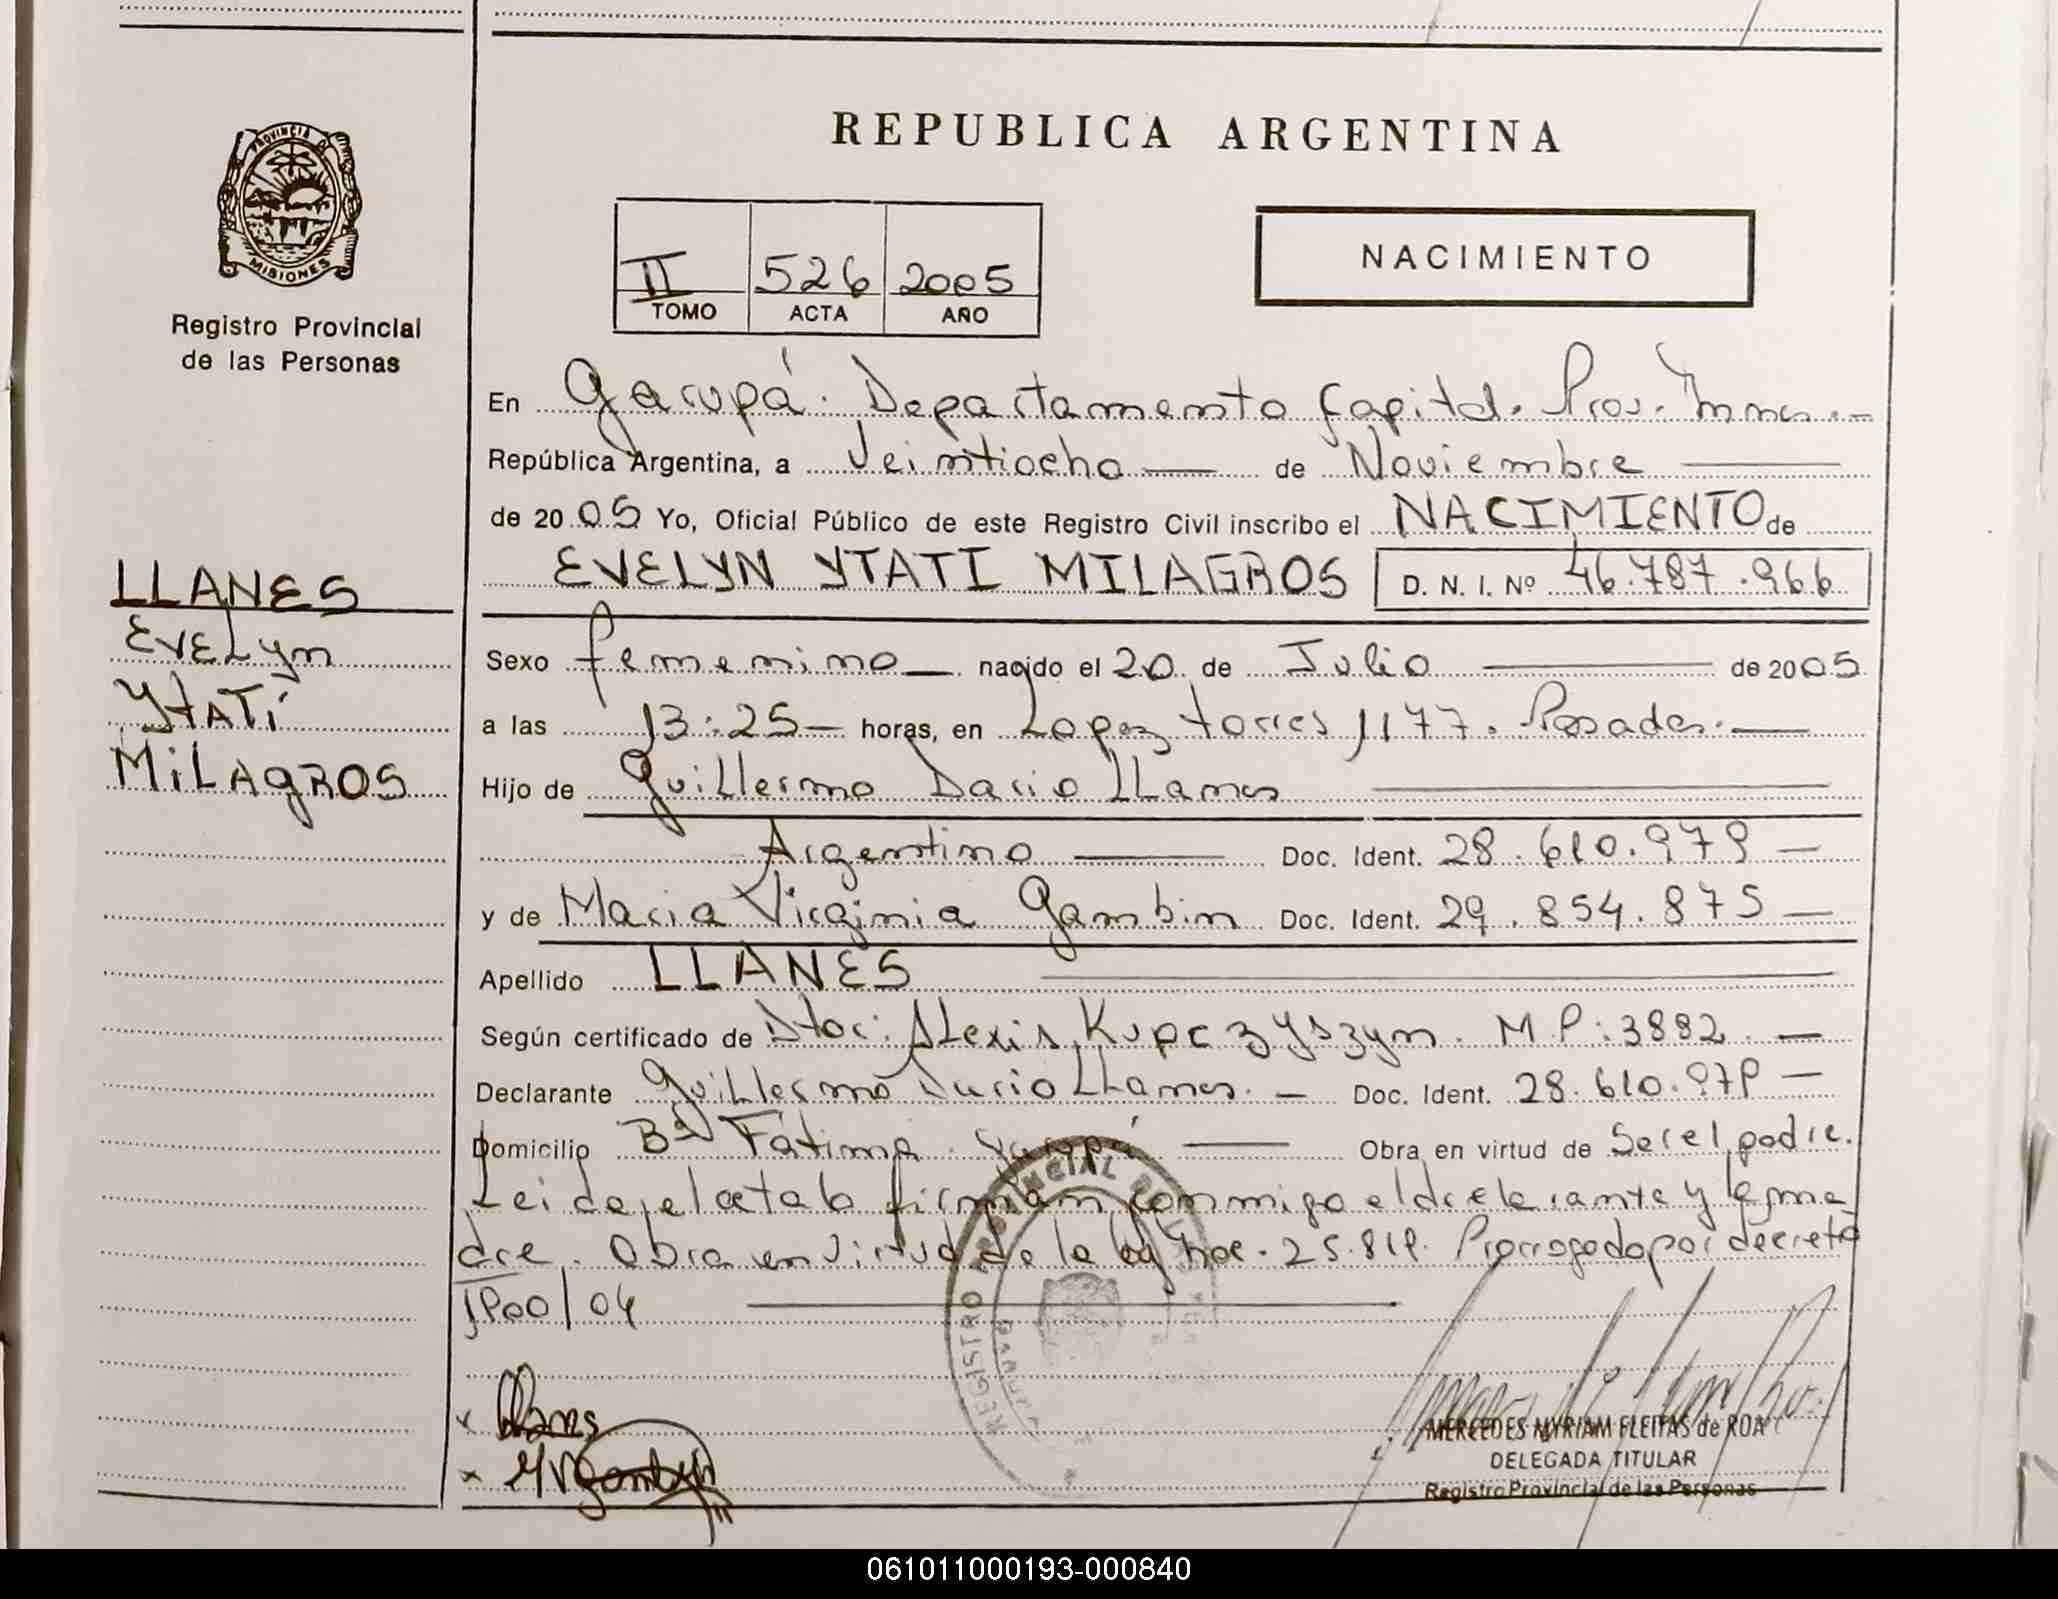 REPUBLICA ARGENTINA
PROVINCIA DE
MISIONES
Registro Provincial
de las Personas
II 526 2005
TOMO ACTA AÑO
NACIMIENTO
En Garupá. Departamento Capital. Prov. Mnes.
República Argentina, a Veintiocho de Noviembre
de 2005 Yo, Oficial Público de este Registro Civil inscribo el NACIMIENTO de
EVELYN YTATI MILAGROS D. N. I. Nº 46.787.966
LLANES
EVELyn
YTATí
MiLAgROS
Sexo femenino nacido el 20 de Julio de 2005
a las 13:25 horas, en Lopez torres 1177. Posadas.
Hijo de Guillermo Dario LLanes
Argentino Doc. Ident. 28.610.979
y de Maria Virginia Gambin Doc. Ident. 29.854.875
Apellido LLANES
Según certificado de Dtor: ALexis Kupczyszyn. M P: 3882.
Declarante Guillermo Dario LLanes. Doc. Ident. 28.610.979
Domicilio Bº Fátima. Garupá Obra en virtud de Ser el padre.
Leida el acta la firman conmigo el declarante y la ma
dre. Obra en virtud de la ley nro. 25.819. Prorrogado por decreto
1900/04
REGISTRO PROVINCIAL DE LAS
Llanes
MVGambin
MERCEDES MYRIAM FLEITAS de ROA
DELEGADA TITULAR
Registro Provincial de las Personas
061011000193-000840